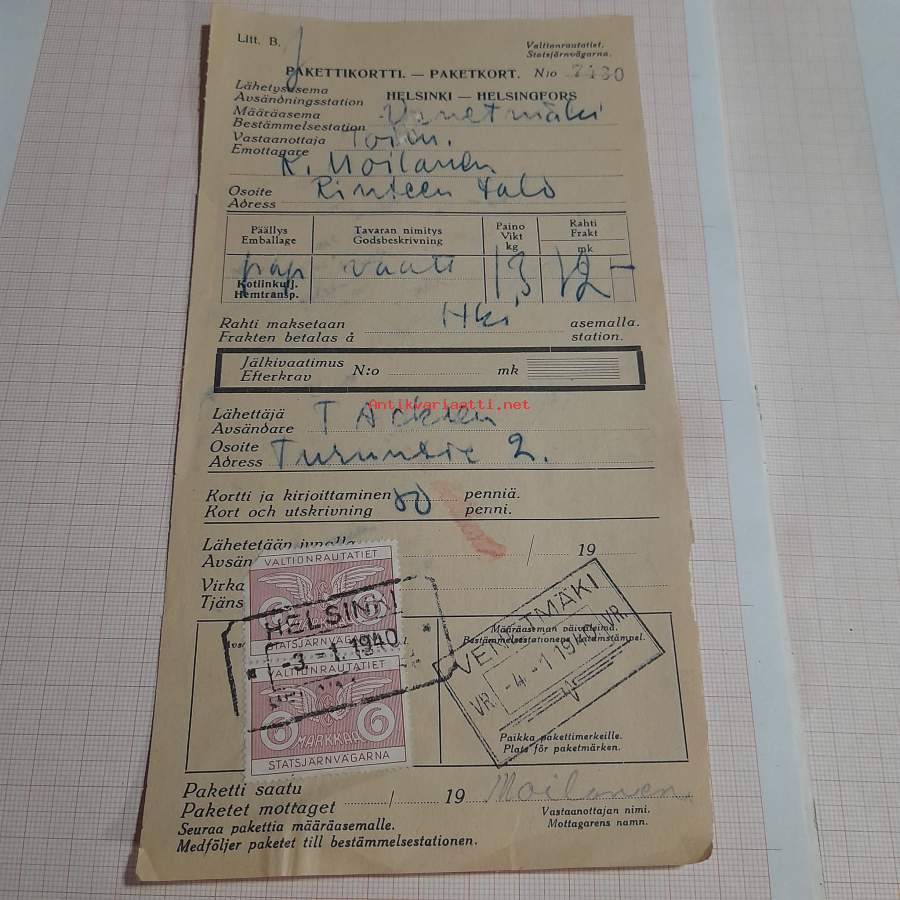 Litt. B.
Valtionrautatiet.
Statsjärnvägarna.
PAKETTIKORTTI. — PAKETKORT. N:o 7130
Lähetysasema
Avsändningsstation HELSINKI — HELSINGFORS
Määräasema
Bestämmelsestation Venetmäki
Vastaanottaja Toim.
Emottagare K. Moilanen
Osoite
Adress Rinteen talo
Päällys
Emballage
Tavaran nimitys
Godsbeskrivning
Paino
Vikt
kg
Rahti
Frakt
mk
pap vaatt 13 12 —
Kotiinkulj.
Hemtransp.
Rahti maksetaan Hki asemalla.
Frakten betalas å station.
Jälkivaatimus
Efterkrav N:o mk
Antikvariaatti.net
Lähettäjä
Avsändare T
Osoite
Adress Turuntie 2.
Kortti ja kirjoittaminen 50 penniä.
Kort och utskrivning penni.
Lähetetään junalla / 19
Avsän
Virka
Tjäns
VALTIONRAUTATIET
6 6
HELSINKI
STATSJÄRNVÄGARNA
-3.-1.1940
VALTIONRAUTATIET
6 6
MARKKAA
STATSJÄRNVÄGARNA
Määräaseman päiväleima.
Bestämmelsestationens datumstämpel.
VENETMÄKI
VR -4.-1 194 VR
Paikka pakettimerkeille.
Plats för paketmärken.
Paketti saatu
Paketet mottaget / 19 Moilanen
Vastaanottajan nimi.
Mottagarens namn.
Seuraa pakettia määräasemalle.
Medföljer paketet till bestämmelsestationen.